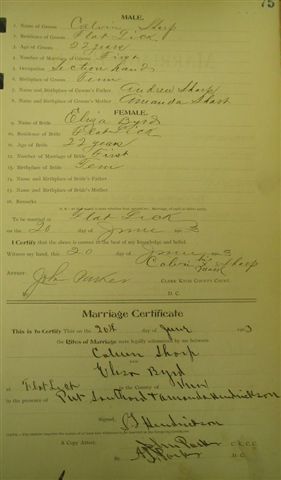 75
MALE.
1. Name of Groom Calvin Sharp
2. Residence of Groom Flat Lick
3. Age of Groom 22 years
4. Number of Marriage of Groom First
5. Occupation Section Hand
6. Birthplace of Groom Tenn
7. Name and Birthplace of Groom's Father Andrew Sharp
8. Name and Birthplace of Groom's Mother Amanda Sharp
FEMALE.
9. Name of Bride Eliza Byrd
10. Residence of Bride Flat Lick
11. Age of Bride 22 years
12. Number of Marriage of Bride First
13. Birthplace of Bride Tenn
14. Name and Birthplace of Bride's Father
15. Name and Birthplace of Bride's Mother
16. Remarks
To be married at Flat Lick
on the 20 day of June 3
I Certify that the above is correct to the best of my knowledge and belief.
Witness my hand, this 20 day of June 3
Calvin Sharp
Attest:
John Parker
CLERK KNOX COUNTY COURT.
D.C.
Marriage Certificate
This is to Certify That on the 20th day of June 3
the Rites of Marriage were legally solemnized by me between
Calvin Sharp
AND
Eliza Byrd
at Flat Lick in the County of Knox
in the presence of Amanda Hendrickson
Signed, Hendrickson
A Copy Attest:
C.K.C.C.
By D.C.